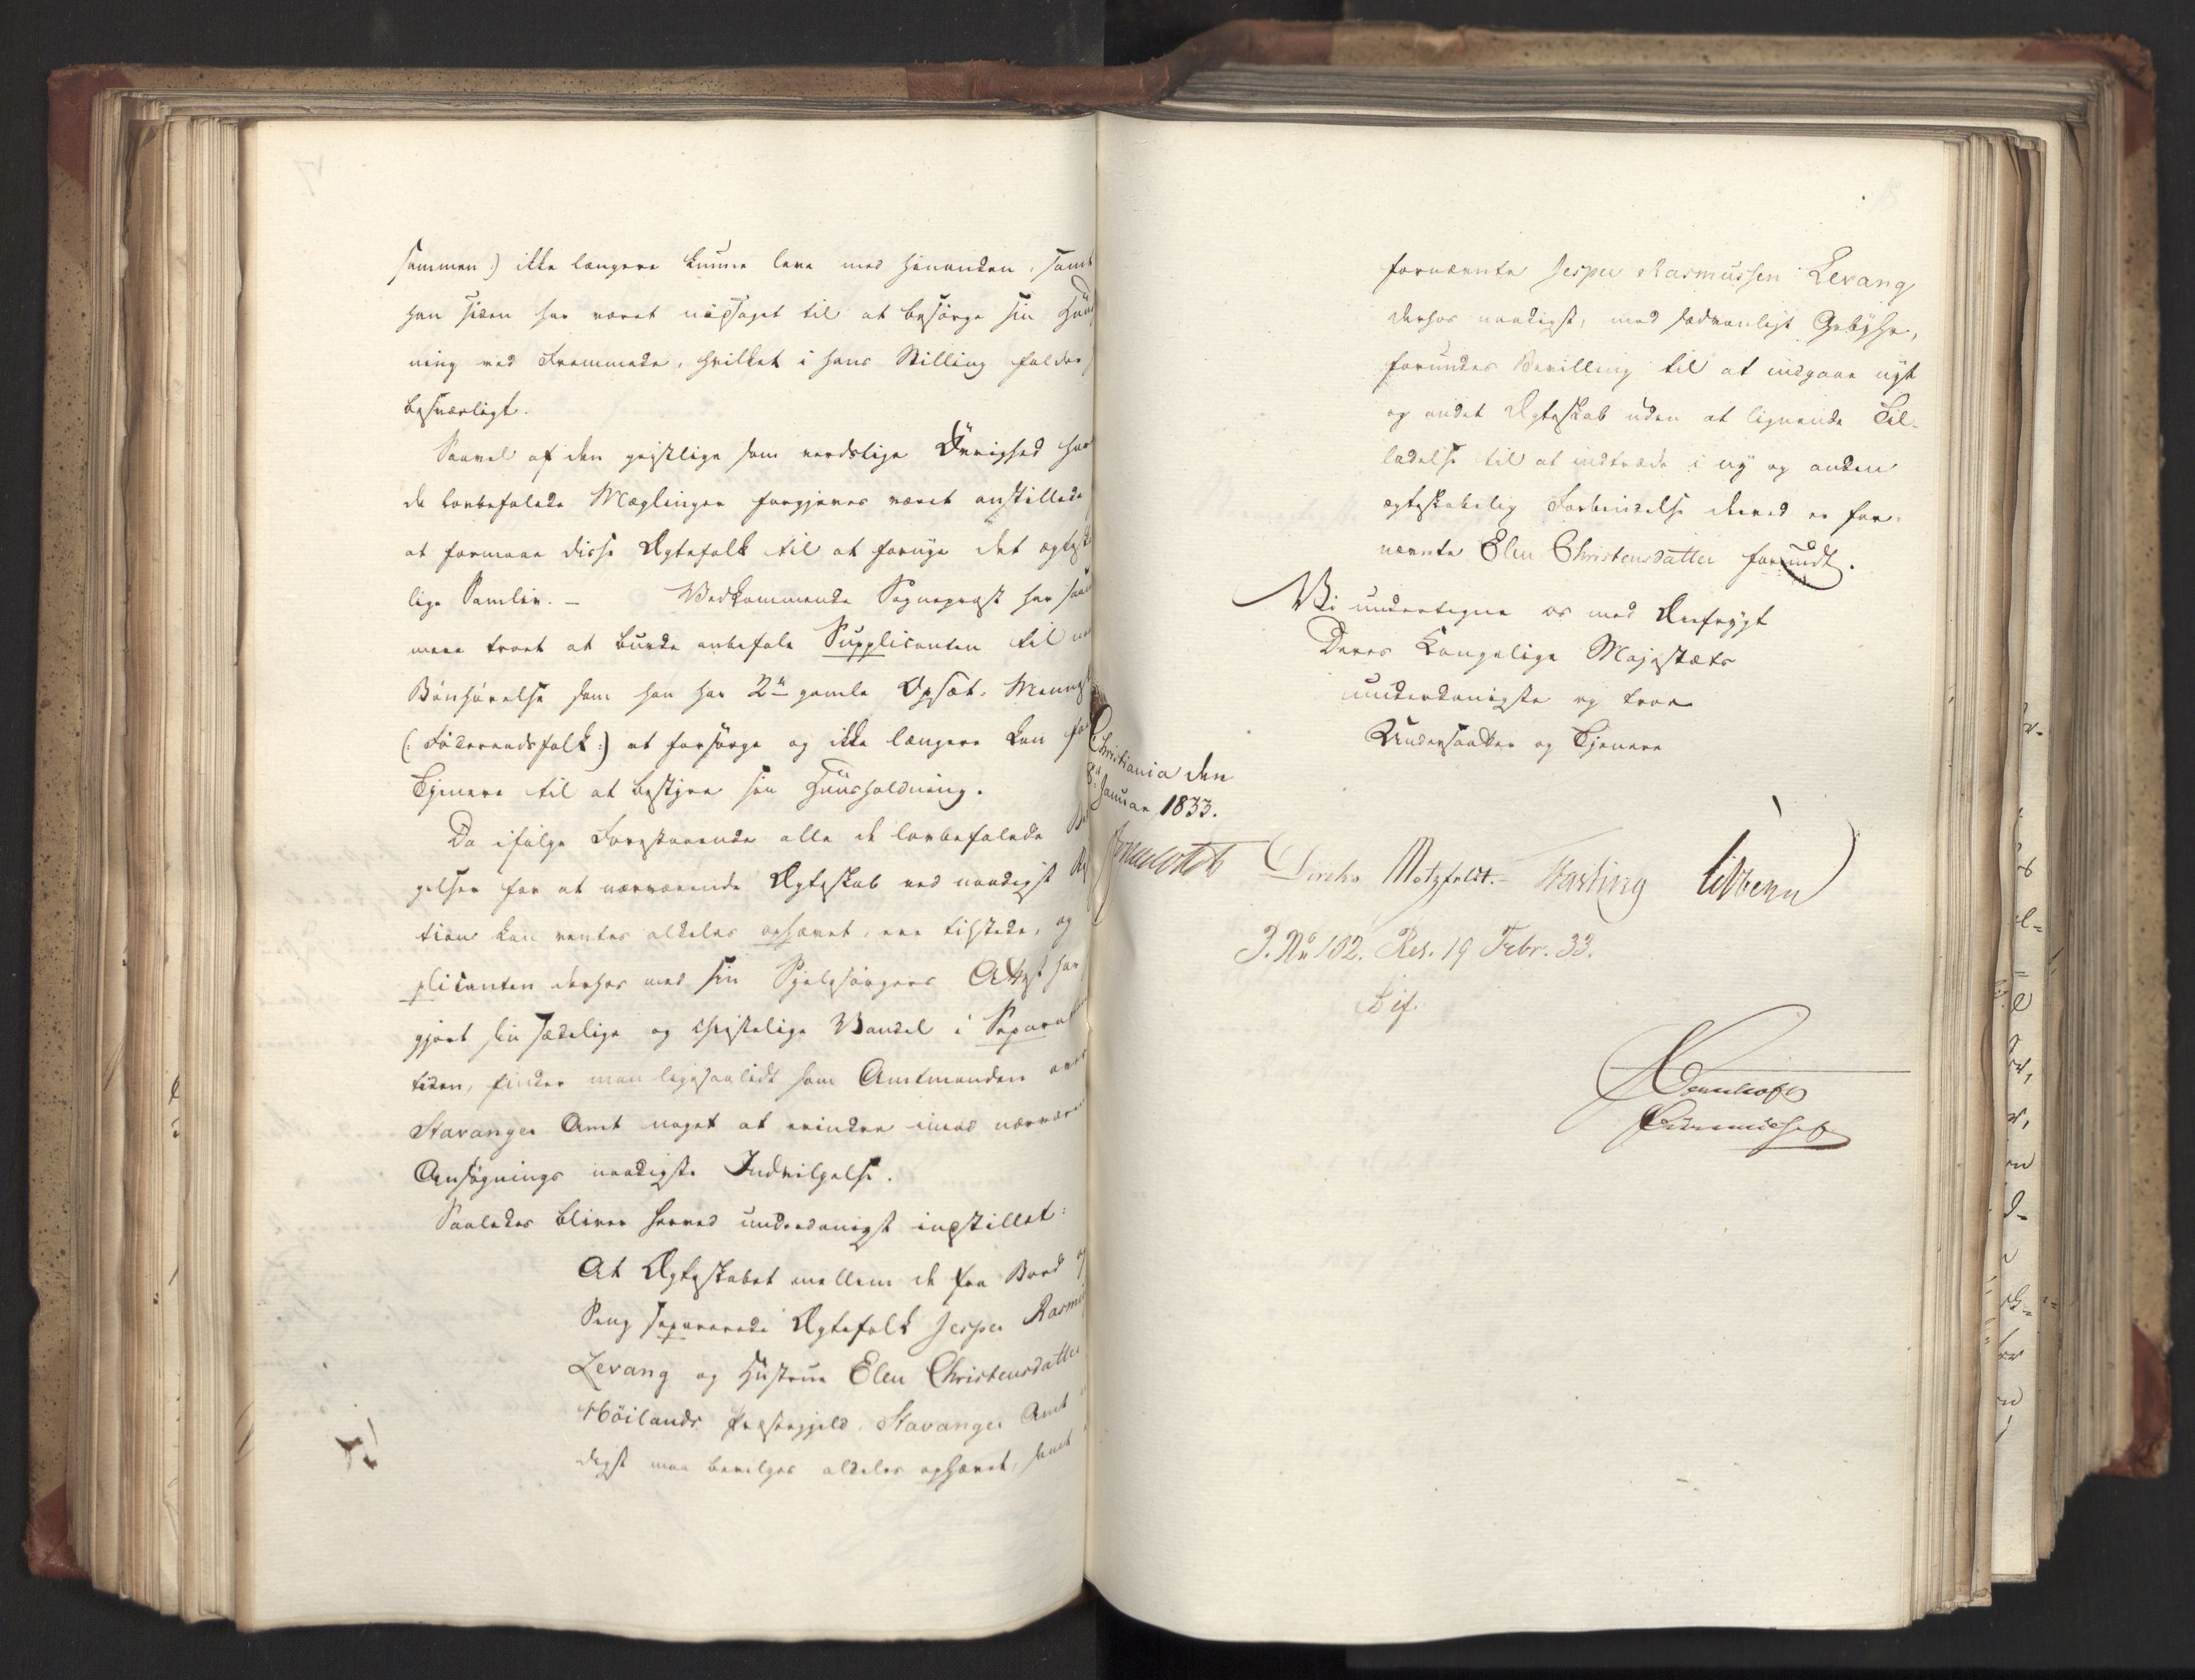 sammen:) ikke længere kunne leve med hinanden, samt
han siden har været nødsaget til at besørge sin Huus
ning ved Fremmede, hvilket i hans Stilling falder
besværligt.
Saavel af den geistlige som verdslige Øvrighed har
de lovbefalede Mæglinger forgjeves været anstillede
at formaae disse Ægtefolk til at fornye det ægtesk
lige Samliv. – Vedkommende Sognepræst har saa
mere troet at burde anbefale Supplicanten til
Bønhørelse som han har 2de gamle Opsæt-Mennesk
(: Føderaadsfolk:) at forsørge og ikke længere kan
Tjenere til at bestyre sin Huusholdning.
Da ifølge Forestaaende alle de lovbefalede
gelser for at nærværende Ægteskab ved naadigst
tion kan ventes aldeles ophævet, ere tilstede, og
plicanten derhos med sin Sjelesørgers Attest har
gjort sin sædelige og christelige Vandel i Separat
tiden, finder man ligesaalidt som Amtmanden over
Stavanger Amt noget at erindre imod nærvære
Ansøgnings naadigste Indvilgelse.
Saaledes bliver herved underdanigst indstillet:
At Ægteskabet mellem de fra Bord og
Seng separerede Ægtefolk Jesper Rasmus
Levang og Hustrue Elen Christensdatter
Höilands Præstegjeld. Stavanger Amt
digst maa bevilges aldeles ophævet, samt
fornævnte Jesper Rasmussen Levang
derhos naadigst, mod sædvanligt Gebyhr,
forundes Bevilling til at indgaae nyt
og andet Ægteskab uden at lignende Til-
ladelse til at indtræde i ny og anden
ægteskabelig Forbindelse derved er for-
nævnte Elen Christensdatter forundt.
Vi undertegne os med Ærefrygt
Deres Kongelige Majestæts
underdanigste og troe
Undersaatter og Tjenere
Christiania den
8de Januar 1833.
Diriks Motzfeldt. Fasting Vibbern
J. No 102. Res. 19 Febr. 33.